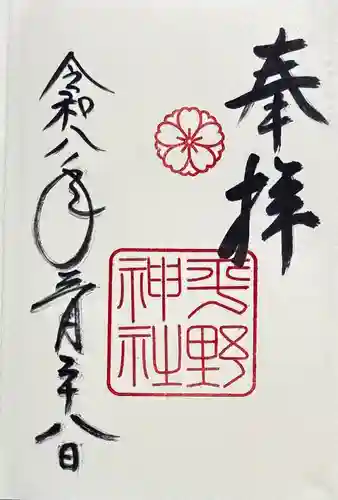 奉拝
平野
神社
令和八年三月十八日